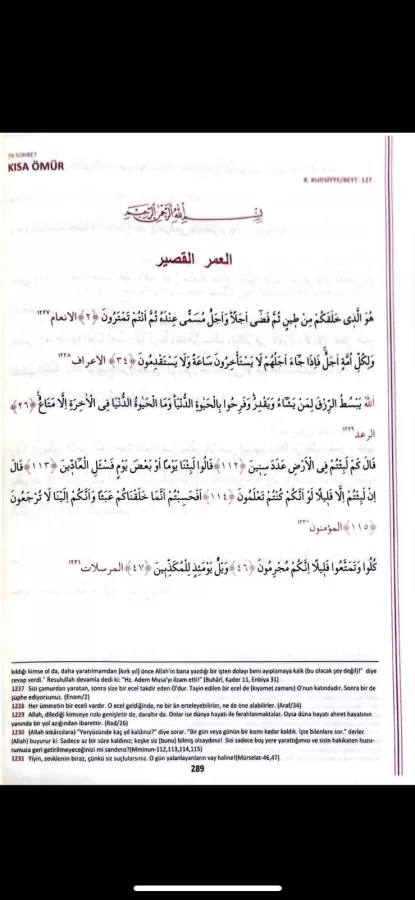 79 SOHBET
KISA ÖMÜR
R. KUDSİYYE/BEYT: 127
بِسْمِ اللهِ الرَّحْمٰنِ الرَّحِيمِ
العمر القصير
هُوَ الَّذِى خَلَقَكُمْ مِنْ طِينٍ ثُمَّ قَضٰٓى اَجَلًا وَاَجَلٌ مُسَمًّى عِنْدَهُ ثُمَّ اَنْتُمْ تَمْتَرُونَ ﴿٢﴾ الانعام ١٢٢٧
وَلِكُلِّ اُمَّةٍ اَجَلٌ فَاِذَا جَٓاءَ اَجَلُهُمْ لَا يَسْتَأْخِرُونَ سَاعَةً وَلَا يَسْتَقْدِمُونَ ﴿٣٤﴾ الاعراف ١٢٢٨
اَللهُ يَبْسُطُ الرِّزْقَ لِمَنْ يَشَٓاءُ وَيَقْدِرُ وَفَرِحُوا بِالْحَيٰوةِ الدُّنْيَا وَمَا الْحَيٰوةُ الدُّنْيَا فِى الْاٰخِرَةِ اِلَّا مَتَاعٌ ﴿٢٦﴾
الرعد ١٢٢٩
قَالَ كَمْ لَبِثْتُمْ فِى الْاَرْضِ عَدَدَ سِنِينَ ﴿١١٢﴾ قَالُوا لَبِثْنَا يَوْمًا اَوْ بَعْضَ يَوْمٍ فَسْـَٔلِ الْعَٓادِّينَ ﴿١١٣﴾ قَالَ
اِنْ لَبِثْتُمْ اِلَّا قَلِيلًا لَوْ اَنَّكُمْ كُنْتُمْ تَعْلَمُونَ ﴿١١٤﴾ اَفَحَسِبْتُمْ اَنَّمَا خَلَقْنَاكُمْ عَبَثًا وَاَنَّكُمْ اِلَيْنَا لَا تُرْجَعُونَ
﴿١١٥﴾ المؤمنون ١٢٣٠
كُلُوا وَتَمَتَّعُوا قَلِيلًا اِنَّكُمْ مُجْرِمُونَ ﴿٤٦﴾ وَيْلٌ يَوْمَئِذٍ لِلْمُكَذِّبِينَ ﴿٤٧﴾ المرسلات ١٢٣١
kıldığı kimse ol da, daha yaratılmamdan [kırk yıl] önce Allah'ın bana yazdığı bir işten dolayı beni ayıplamaya kalk (bu olacak şey değil)!" diye
cevap verdi." Resulullah devamla dedi ki: "Hz. Adem Musa'yı ilzam etti!" (Buhârî, Kader 11, Enbiya 31)
1227 Sizi çamurdan yaratan, sonra size bir ecel takdir eden O'dur. Tayin edilen bir ecel de (kıyamet zamanı) O'nun katındadır. Sonra bir de
şüphe ediyorsunuz. (Enam/2)
1228 Her ümmetin bir eceli vardır. O ecel geldiğinde, ne bir ân erteleyebilirler, ne de öne alabilirler. (Araf/34)
1229 Allah, dilediği kimseye rızkı genişletir de, daraltır da. Onlar ise dünya hayatı ile ferahlanmaktalar. Oysa dünya hayatı ahiret hayatının
yanında bir yol azığından ibarettir. (Rad/26)
1230 (Allah inkârcılara) "Yeryüzünde kaç yıl kaldınız?" diye sorar. "Bir gün veya günün bir kısmı kadar kaldık. İşte bilenlere sor." derler.
(Allah) buyurur ki: Sadece az bir süre kaldınız; keşke siz (bunu) bilmiş olsaydınız! Sizi sadece boş yere yarattığımızı ve sizin hakikaten huzu-
rumuza geri getirilmeyeceğinizi mi sandınız?(Mminun-112,113,114,115)
1231 Yiyin, zevklenin biraz, çünkü siz suçlularsınız. O gün yalanlayanların vay haline!(Mürselat-46,47)
289